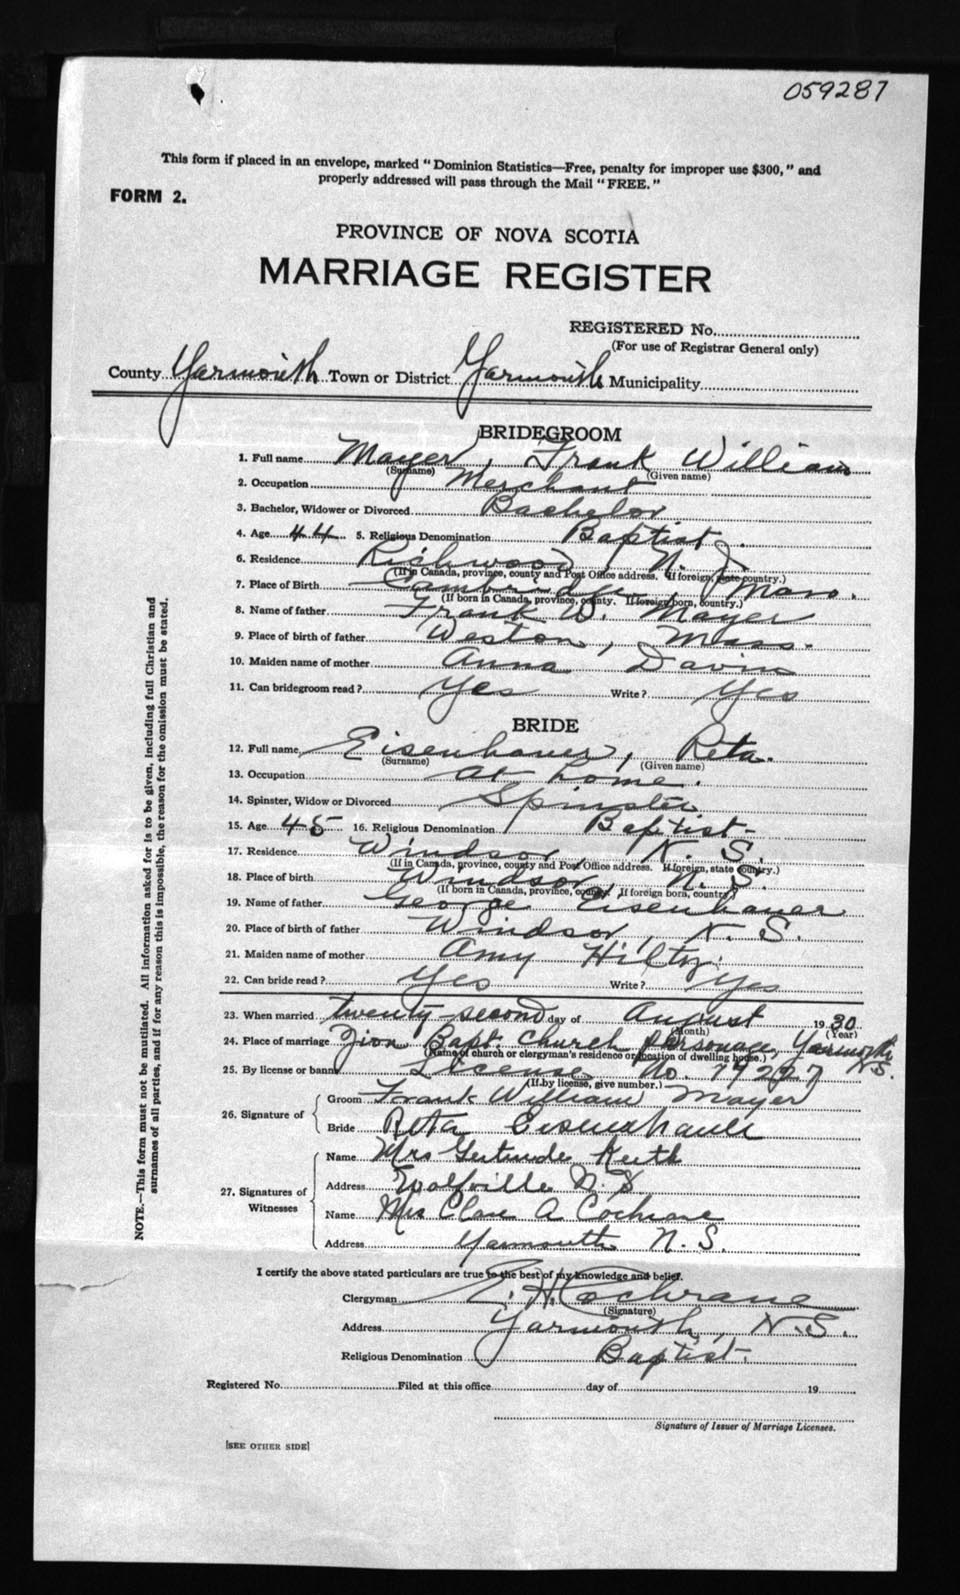 059287
This form if placed in an envelope, marked "Dominion Statistics—Free, penalty for improper use $300," and
properly addressed will pass through the Mail "FREE."
FORM 2.
PROVINCE OF NOVA SCOTIA
MARRIAGE REGISTER
REGISTERED No.
(For use of Registrar General only)
County Yarmouth Town or District Yarmouth Municipality
BRIDEGROOM
1. Full name Mayer, Frank William
(Surname) (Given name)
2. Occupation Merchant
3. Bachelor, Widower or Divorced Bachelor
4. Age 44 5. Religious Denomination Baptist.
6. Residence Richwood, N. J.
(If in Canada, province, county and Post Office address. If foreign, state country.)
7. Place of Birth Cambridge, Mass.
(If born in Canada, province, county. If foreign born, country.)
8. Name of father Frank W. Mayer
9. Place of birth of father Weston, Mass.
10. Maiden name of mother Anna Davis
11. Can bridegroom read? Yes Write? Yes
BRIDE
12. Full name Eisenhauer, Reta.
(Surname) (Given name)
13. Occupation at home.
14. Spinster, Widow or Divorced Spinster
15. Age 45 16. Religious Denomination Baptist-
17. Residence Windsor, N. S.
(If in Canada, province, county and Post Office address. If foreign, state country.)
18. Place of birth Windsor, N. S.
(If born in Canada, province, county. If foreign born, country.)
19. Name of father George Eisenhauer
20. Place of birth of father Windsor, N. S.
21. Maiden name of mother Amy Hiltz.
22. Can bride read? Yes Write? Yes
23. When married twenty-second day of August 1930
(Month) (Year)
24. Place of marriage Zion Bapt. Church parsonage, Yarmouth, N.S.
(Name of church or clergyman's residence or location of dwelling house.)
25. By license or banns License No. 79227
(If by license, give number.)
26. Signature of
Groom Frank William Mayer
Bride Reta Eisenhauer
27. Signatures of Witnesses
Name Mrs Gertrude Keith
Address Wolfville N. S.
Name Mrs Clare A Cochrane
Address Yarmouth N. S.
I certify the above stated particulars are true to the best of my knowledge and belief.
Clergyman E. H. Cochrane
(Signature)
Address Yarmouth, N.S.
Religious Denomination Baptist.
Registered No. Filed at this office day of 19
Signature of Issuer of Marriage Licenses.
[SEE OTHER SIDE]
NOTE.—This form must not be mutilated. All information asked for is to be given, including full Christian and
surnames of all parties, and if for any reason this is impossible, the reason for the omission must be stated.